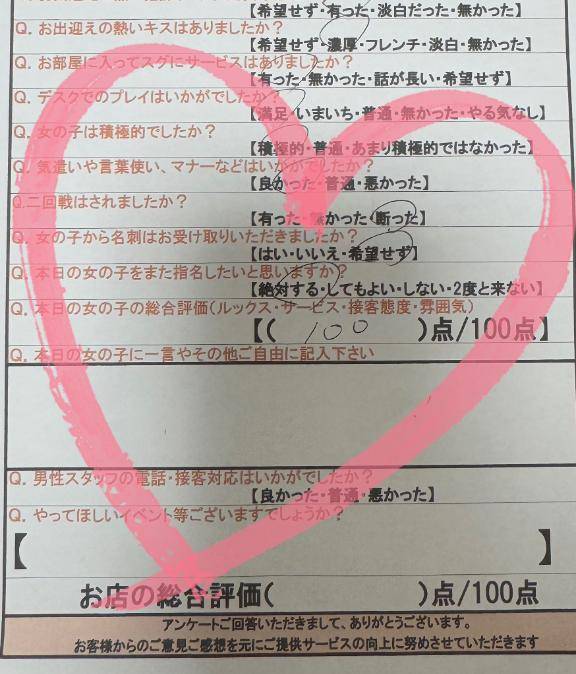 【希望せず・有った・淡白だった・無かった】
Q. お出迎えの熱いキスはありましたか?
【希望せず・濃厚・フレンチ・淡白・無かった】
Q. お部屋に入ってスグにサービスはありましたか?
【有った・無かった・話が長い・希望せず】
Q. デスクでのプレイはいかがでしたか?
【満足・いまいち・普通・無かった・やる気なし】
Q. 女の子は積極的でしたか?
【積極的・普通・あまり積極的ではなかった】
Q. 気遣いや言葉使い、マナーなどはいかがでしたか?
【良かった・普通・悪かった】
Q.二回戦はされましたか?
【有った・無かった・断った】
Q. 女の子から名刺はお受け取りいただきましたか?
【はい・いいえ・希望せず】
Q. 本日の女の子をまた指名したいと思いますか?
【絶対する・してもよい・しない・2度と来ない】
Q. 本日の女の子の総合評価(ルックス・サービス・接客態度・雰囲気)
【( 100 )点/100点】
Q. 本日の女の子に一言やその他ご自由に記入下さい
Q. 男性スタッフの電話・接客対応はいかがでしたか?
【良かった・普通・悪かった】
Q. やってほしいイベント等ございますでしょうか?
【 】
お店の総合評価( )点/100点
アンケートご回答いただきまして、ありがとうございます。
お客様からのご意見ご感想を元にご提供サービスの向上に努めさせていただきます